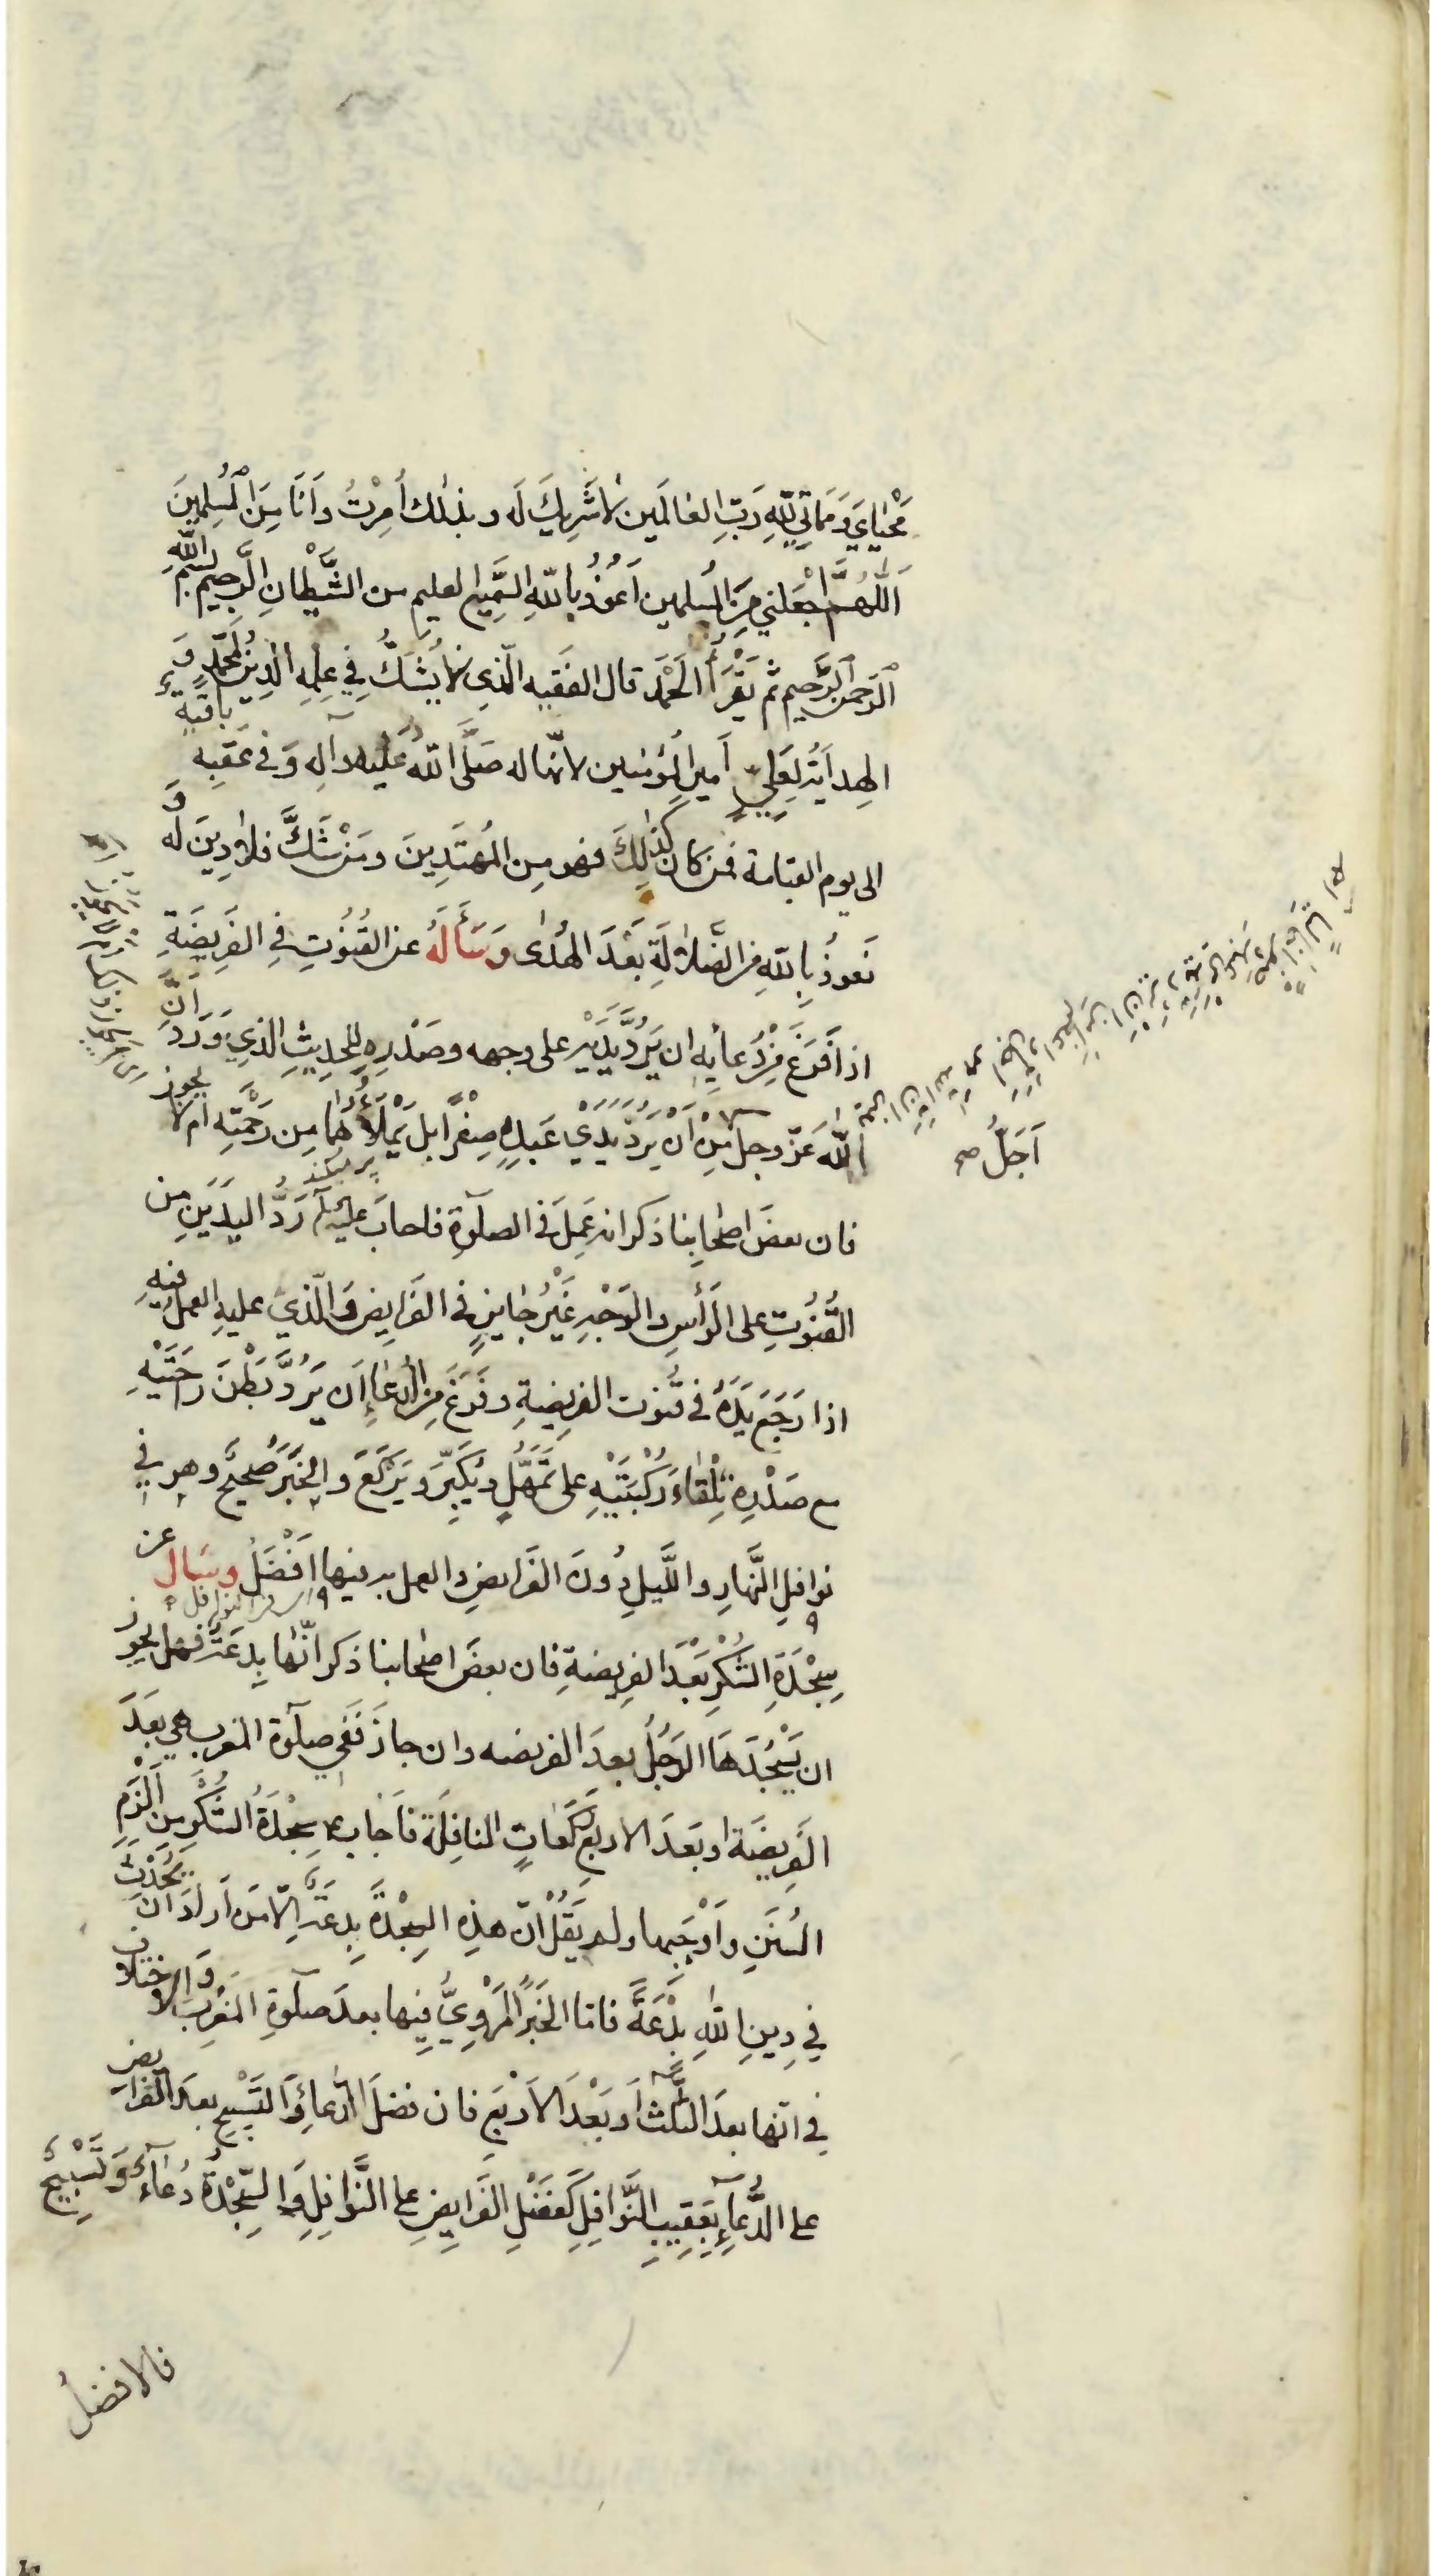 مَحْيٰايَ وَمَمَاتِي لِلّٰهِ رَبِّ العٰالَمين لاٰ شَرِيكَ لَه وبذلك اُمِرْتُ وَاَنَا مِنَ الْمُسْلِمينَ
اَللّٰهُمَّ اجْعَلْني مِنَ المُسلمين اَعوُذُ بِاللّٰهِ السَّمِيعِ العليمِ من الشَّيْطانِ الرَّجِيمِ بِسْمِ اللّٰهِ
الرّحمن الرَّحيم ثم يَقْرَأُ الْحَمْدَ قال الفَقيه الّذي لاٰ يُشَكُّ فِي عِلمِهِ الدِينُ لِمُحَمَّدٍ وَ
الهِدايَةُ لِعَليٍّ أميرِ المُؤمنين لانّها له صَلَّى اللّٰه عَلَيْهِ وآلِهِ وَفي عَقِبِهِ باقيةٌ
الى يوم القيامة فمن كان كَذٰلِكَ فهو مِن المُهتَدِينَ ومَنْ شَكَّ فلاٰ دِينَ لَه وَ
نَعوذُ بِاللّٰهِ من الضَّلاٰلَةِ بَعْدَ الهُدٰى وَسَأَلَهُ عن القُنُوتِ فِي الفَرِيضَةِ
اذا فَرَغَ مِنْ دُعائِهِ ان يَرُدَّ يَدَيْهِ على وجهه وصَدْرِهِ للحديثِ الذِي وَرَدَ اَنَّ
اللّٰه عَزّ وجل مِنْ اَنْ يَرُدَّ يَدَيْ عَبدِهِ صِفْرًا بَلْ يَمْلَأُهُمٰا مِن رَحْمَتِهِ ام لا يجوز
اَجَلُّ صح
فان بعضَ اصْحٰابِنا ذكر انه عَمَلٌ في الصلٰوةِ فاجابَ عليه السلام رَدُّ اليَدَيَنِ مِن
القُنُوتِ على الرَّأسِ والوَجْهِ غَيْرُ جٰايزٍ في الفَرَايِضِ وَالّذي عليهِ العمل فيه
اذا رَجَعَ يَدَهُ في قُنوت الفريضةِ وفَرَغَ مِنَ الدُعاءِ اَن يَرُدَّ بَطْنَ رٰاحَتَيْهِ
مع صَدْرِهِ تِلْقٰاءَ رُكْبَتَيْهِ على تَمَهُّلٍ ويُكَبِّرَ ويَرْكَعَ والخَبَرُ صَحِيحٌ وهو فِي
نوافِلِ النَّهارِ واللَّيلِ دُونَ الفَرَايضِ والعمل به فيها اَفْضَلُ وسَال عن
سِجْدَةِ الشُكْرِ بَعْدَ الفريضةِ فان بعضَ اصحابنا ذكر انّها بِدعَةٌ فهل يجوز
ان يَسْجُدَهَا الرَجُلُ بعدَ الفريضه وان جازَ فَفي صلٰوة المغرب هي بَعَدَ
الفَرِيضَة او بَعَدَ الاربَعِ رَكَعاتٍ النافِلَة فاَجٰابَ ع سِجْدَةُ الشُكْرِ من اَلْزَمِ
السُنَنِ واَوْجَبِها ولم يَقُلْ انّ هذِهِ السِجْدَةَ بِدعَةٌ اِلّا مَن اَرادَ ان يُحْدِثَ
فِي دِينِ اللّٰهِ بِدْعَةً فامّا الخَبَرُ المَرْوِيُّ فِيها بعدَ صلٰوةِ المَغْرِبَ وَالاِختلاف
فِي انّها بعدَ الثلث اَو بَعْدَ الاَرْبَعِ فان فضلَ الدُعاءِ وَالتَسْبِيحِ بعدَ الفَرايضِ
على الدُّعآءِ بِعَقِيبِ النَّوَافِلِ كَفَضْلِ الفَرَايِضِ على النَّوافِلِ وَالسِّجْدَةُ دُعٰاءٌ وَتَسْبِيحٌ
فالافضلُ